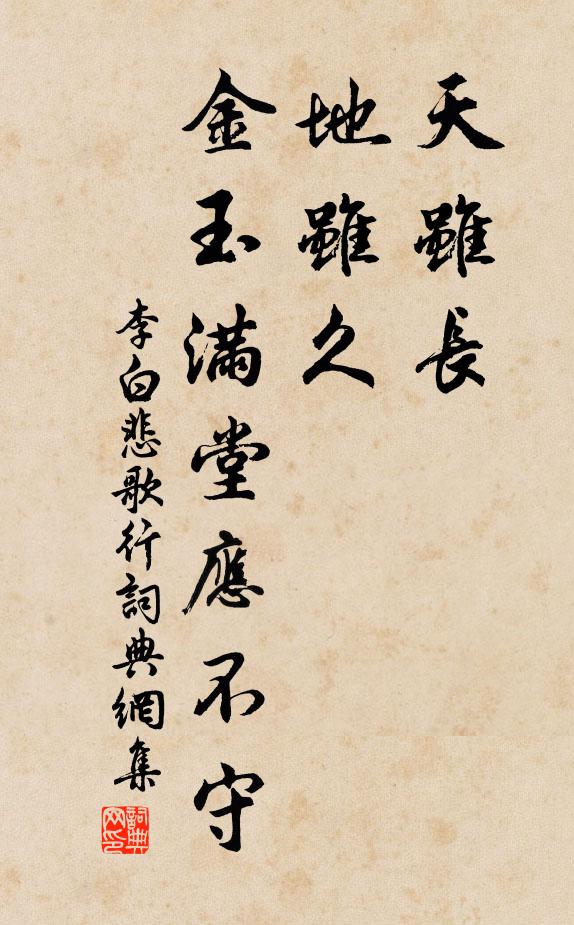 天雖長
地雖久
金玉滿堂應不守
李白悲歌行詞典網集
詞典网印